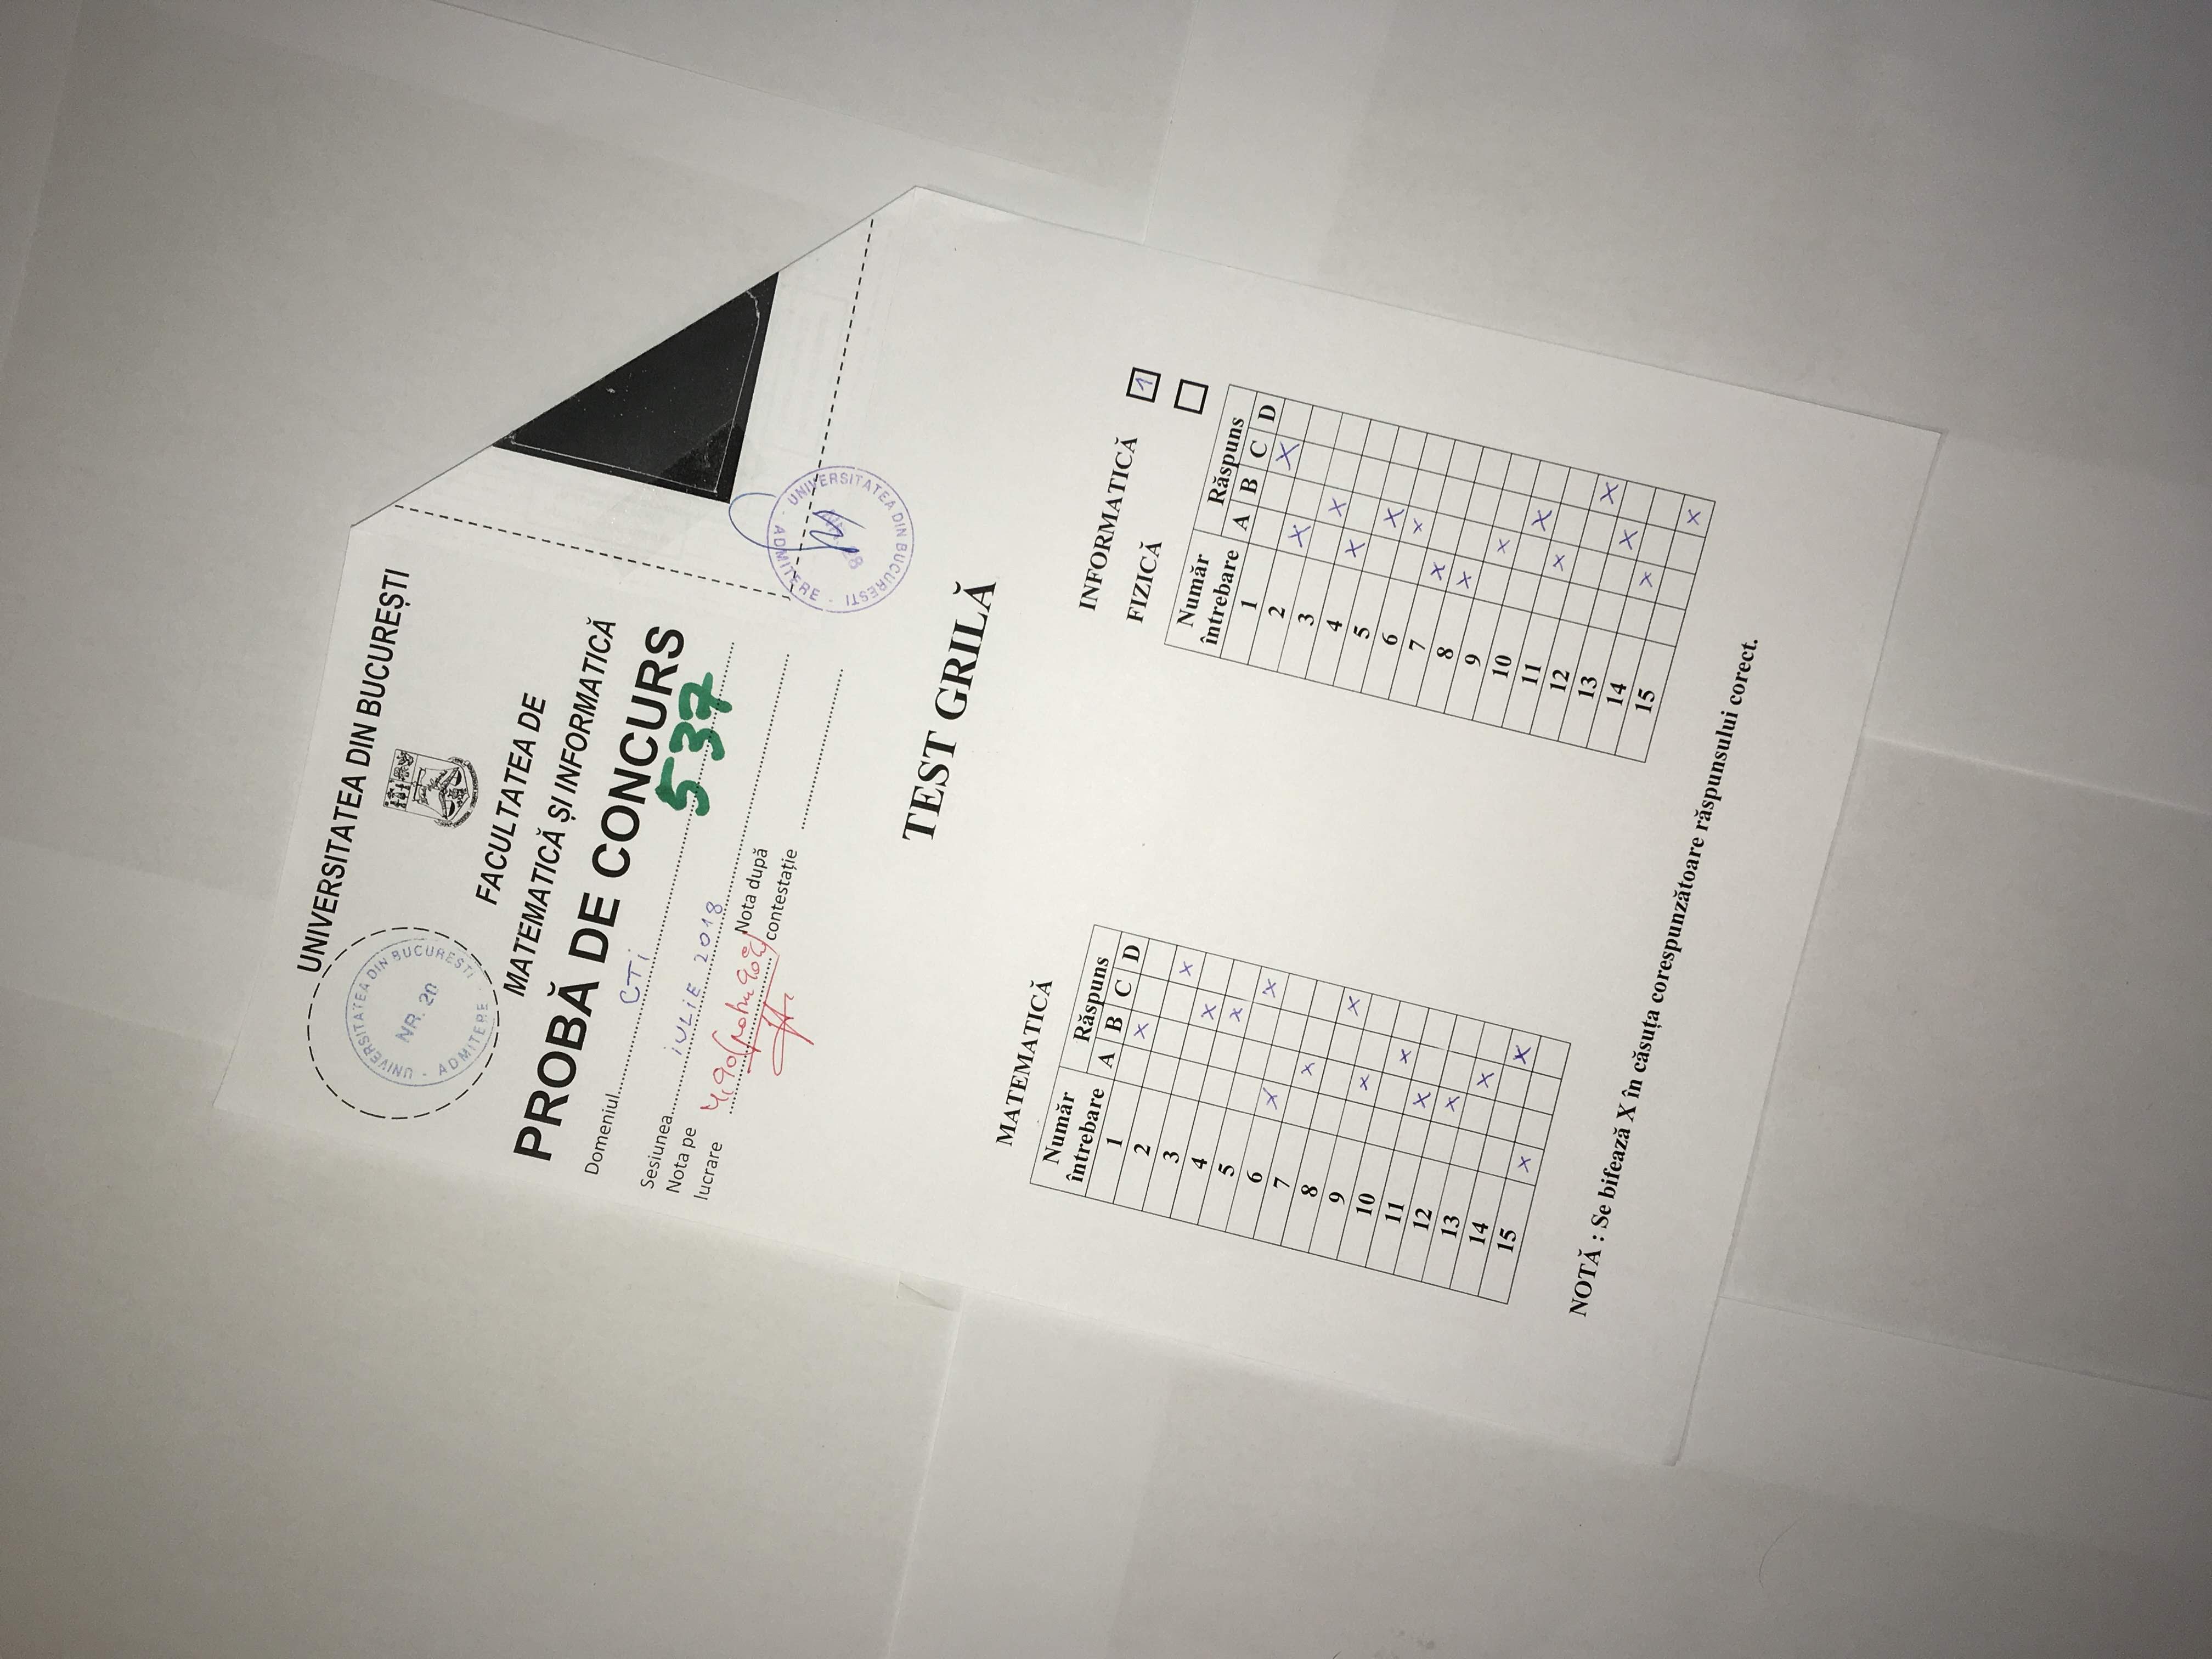 UNIVERSITATEA DIN BUCUREȘTI
UNIVERSITATEA DIN BUCURESTI - ADMITERE -
NR. 20
FACULTATEA DE
MATEMATICĂ ȘI INFORMATICĂ
PROBĂ DE CONCURS
Domeniul CTi
537
Sesiunea iULiE 2018
Nota pe
lucrare 4,90 (patru 90%)
Nota după
contestație
UNIVERSITATEA DIN BUCURESTI - ADMITERE -
TEST GRILĂ
MATEMATICĂ
Număr întrebare Răspuns
A B C D
1 X
2 X
3 X
4 X
5 X
6 X
7 X
8 X
9 X
10 X
11 X
12 X
13 X
14 X
15 X
INFORMATICĂ 1
FIZICĂ
Număr întrebare Răspuns
A B C D
1 X
2 X
3 X
4 X
5 X
6 X
7 X
8 X
9 X
10 X
11 X
12 X
13 X
14 X
15 X
NOTĂ : Se bifează X în căsuța corespunzătoare răspunsului corect.